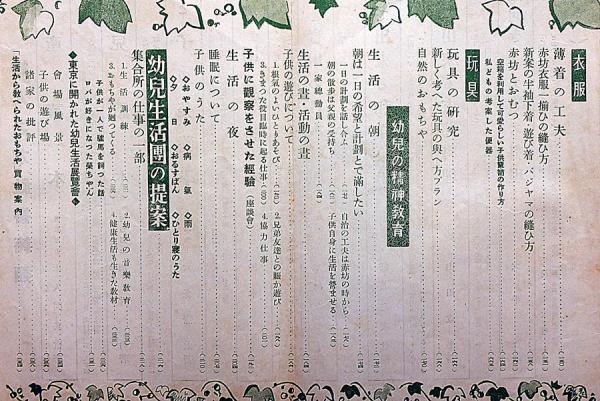 衣服
薄着の工夫
赤坊衣服一揃ひの縫ひ方
新案の半袖下着・遊び着・パジャマの縫ひ方
赤坊とおむつ
空箱を利用して可愛らしい子供簞笥の作り方
私どもの考案した便器
玩具
玩具の研究
新しく考へた玩具の與へ方プラン
自然のおもちや
幼兒の精神敎育
生活の朝
朝は一日の希望と計劃とで滿したい
一日の計劃を話し合ふ
自治の工夫は赤坊の時から
朝の散歩は父親の受持ち
子供自身に生活を營ませる
一家總動員
生活の晝・活動の晝
子供の遊びについて
1. 根氣のよいひとりあそび
2. 兄弟友達との賑か遊び
3. きまつた役目臨時に起る仕事
4. 協力仕事
子供に觀察をさせた經驗(座談會)
生活の夜
睡眠について
子供のうた
◇おやすみ
◇病氣
◇雨
◇夕日
◇おるすばん
◇ひとり寢のうた
幼兒生活團の提案
集合所の仕事の一部
1. 生活訓練
2. 幼兒の音樂敎育
3. おもちやが廻つてくる
4. 健康生活も生きた敎材
子供が一人で驢馬を飼つた話
ロバが好きになつた榮ちやん
◆東京に開かれた幼兒生活展覽會◆
會場風景
子供の遊び場
諸家の批評
「生活から敎へられたおもちや」買物案內